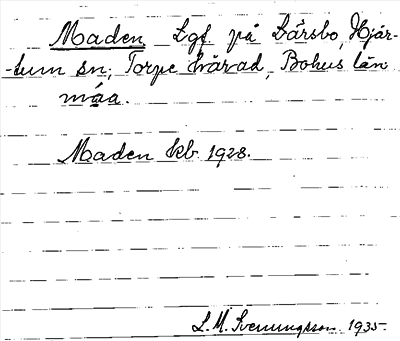 Maden. Lgf på Bårsbo, Hjär-
-tum sn; Torpe härad, Bohus län
máa.
Maden kb 1928.
L. M. Svenungsson 1935.